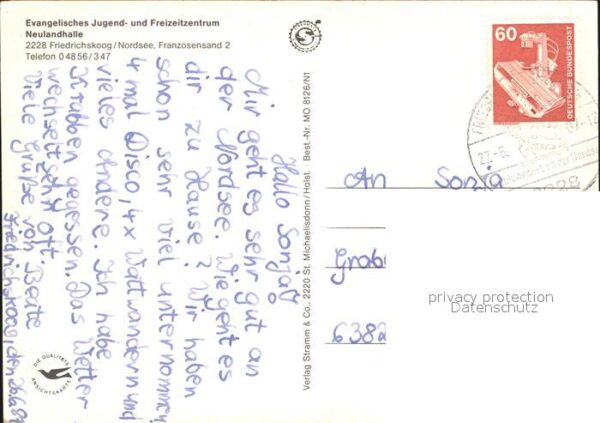 Evangelisches Jugend- und Freizeitzentrum
Neulandhalle
2228 Friedrichskoog/Nordsee, Franzosensand 2
Telefon 0 48 56 / 3 47
Hallo Sonja!
Mir geht es sehr gut an
der Nordsee. Wie geht es
dir zu Hause? Wir haben
schon sehr viel unternommen,
4 mal Disco, 4x Wattwandern und
vieles andere. Ich habe
Krabben gegessen. Das Wetter
wechselt sehr oft.
Viele Grüße von Beate
Friedrichskoog, den 26.6.87
DIE QUALITÄTS
ANSICHTSKARTE
Verlag Stramm & Co., 2220 St. Michaelisdonn/Holst. Best.-Nr. MO 8126/N1
60
DEUTSCHE BUNDESPOST
27.-6.
2228
An Sonja
Grab
6382
privacy protection
Datenschutz